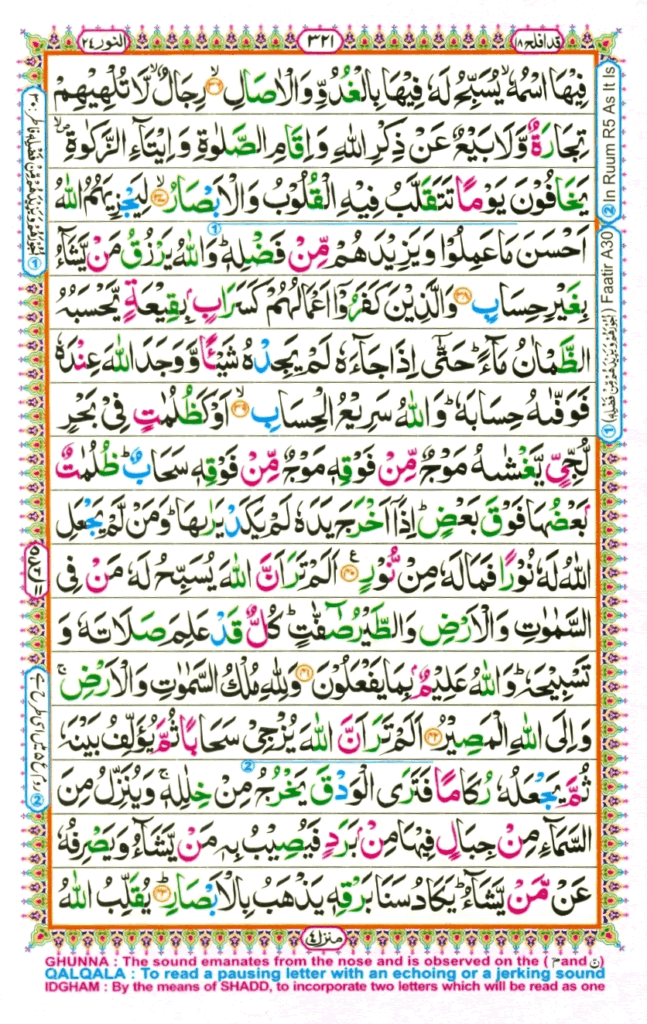 قد افلح ١٨
٣٢١
النور ٢٤
فِيْهَا اسْمُهٗ ۙ يُسَبِّحُ لَهٗ فِيْهَا بِالْغُدُوِّ وَالْاٰصَالِ ۙ﴿۳۶﴾ رِجَالٌ ۙ لَّا تُلْهِيْهِمْ
تِجَارَةٌ وَّلَا بَيْعٌ عَنْ ذِكْرِ اللّٰهِ وَاِقَامِ الصَّلٰوةِ وَاِيْتَآءِ الزَّكٰوةِ ۪ۙ
يَخَافُوْنَ يَوْمًا تَتَقَلَّبُ فِيْهِ الْقُلُوْبُ وَالْاَبْصَارُ ۙ﴿۳۷﴾ لِيَجْزِيَهُمُ اللّٰهُ
اَحْسَنَ مَا عَمِلُوْا وَيَزِيْدَهُمْ مِّنْ فَضْلِهٖ ؕ وَاللّٰهُ يَرْزُقُ مَنْ يَّشَآءُ
بِغَيْرِ حِسَابٍ ﴿۳۸﴾ وَالَّذِيْنَ كَفَرُوْۤا اَعْمَالُهُمْ كَسَرَابٍۢ بِقِيْعَةٍ يَّحْسَبُهُ
الظَّمْاٰنُ مَآءً ؕ حَتّٰۤى اِذَا جَآءَهٗ لَمْ يَجِدْهُ شَيْـًٔا وَّوَجَدَ اللّٰهَ عِنْدَهٗ
فَوَفّٰىهُ حِسَابَهٗ ؕ وَاللّٰهُ سَرِيْعُ الْحِسَابِ ۙ﴿۳۹﴾ اَوْ كَظُلُمٰتٍ فِيْ بَحْرٍ
لُّجِّيٍّ يَّغْشٰىهُ مَوْجٌ مِّنْ فَوْقِهٖ مَوْجٌ مِّنْ فَوْقِهٖ سَحَابٌ ؕ ظُلُمٰتٌۢ
بَعْضُهَا فَوْقَ بَعْضٍ ؕ اِذَاۤ اَخْرَجَ يَدَهٗ لَمْ يَكَدْ يَرٰىهَا ؕ وَمَنْ لَّمْ يَجْعَلِ
اللّٰهُ لَهٗ نُوْرًا فَمَا لَهٗ مِنْ نُّوْرٍ ﴿۴۰﴾ اَلَمْ تَرَ اَنَّ اللّٰهَ يُسَبِّحُ لَهٗ مَنْ فِى
السَّمٰوٰتِ وَالْاَرْضِ وَالطَّيْرُ صٰٓفّٰتٍ ؕ كُلٌّ قَدْ عَلِمَ صَلَاتَهٗ وَ
تَسْبِيْحَهٗ ؕ وَاللّٰهُ عَلِيْمٌۢ بِمَا يَفْعَلُوْنَ ﴿۴۱﴾ وَلِلّٰهِ مُلْكُ السَّمٰوٰتِ وَالْاَرْضِ ۚ
وَاِلَى اللّٰهِ الْمَصِيْرُ ﴿۴۲﴾ اَلَمْ تَرَ اَنَّ اللّٰهَ يُزْجِيْ سَحَابًا ثُمَّ يُؤَلِّفُ بَيْنَهٗ
ثُمَّ يَجْعَلُهٗ رُكَامًا فَتَرَى الْوَدْقَ يَخْرُجُ مِنْ خِلٰلِهٖ ۚ وَيُنَزِّلُ مِنَ
السَّمَآءِ مِنْ جِبَالٍ فِيْهَا مِنْۢ بَرَدٍ فَيُصِيْبُ بِهٖ مَنْ يَّشَآءُ وَيَصْرِفُهٗ
عَنْ مَّنْ يَّشَآءُ ؕ يَكَادُ سَنَا بَرْقِهٖ يَذْهَبُ بِالْاَبْصَارِ ؕ﴿۴۳﴾ يُقَلِّبُ اللّٰهُ
منزل ٤
② In Ruum R5 As It Is
① Faatir A30
GHUNNA : The sound emanates from the nose and is observed on the ( م and ن )
QALQALA : To read a pausing letter with an echoing or a jerking sound
IDGHAM : By the means of SHADD, to incorporate two letters which will be read as one